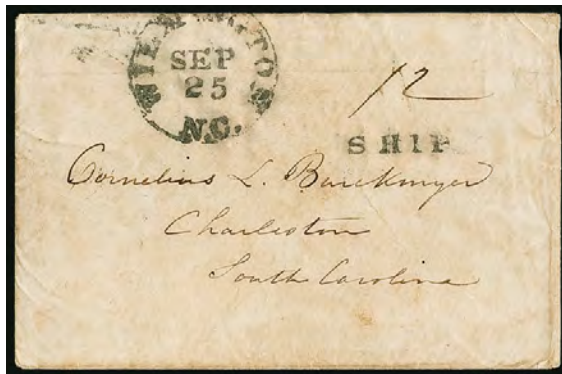 WILMINGTON
SEP
25
N.C.
12
SHIP
Cornelius L. Burckmyer
Charleston
South Carolina